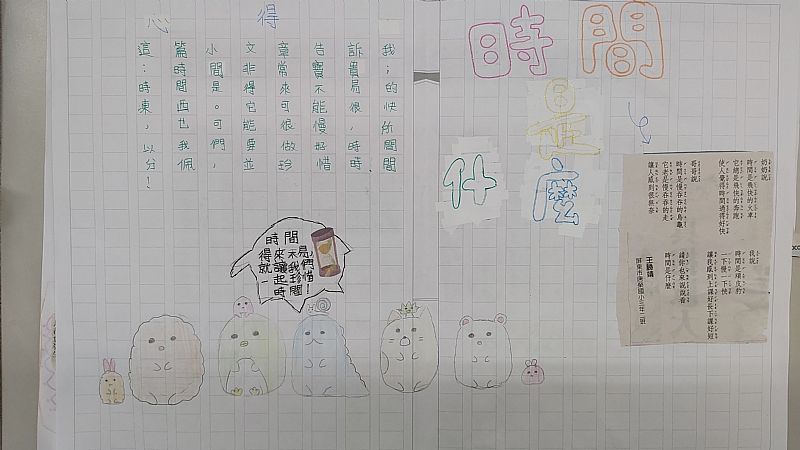 時間
是
什麼
心得
這篇小文章告訴我
:時間非常寶貴;
時間是得來不易的
東西。它可能很快
,也可能很慢,所
以我們要做好時間
分佩,並珍惜時間
!
時間
得來不易,
就讓我們
一起珍惜
時間!
奶奶說
時間是飛快的火車
它總是飛快的奔跑
使人覺得時間過得好快
哥哥說
時間是慢吞吞的烏龜
它老是慢吞吞的走
讓人感到很無奈
我說
時間是頑皮豹
一下慢一下快
讓我感到上課好長下課好短
請你也來說說看
時間是什麼
屏東市唐榮國小三年二班